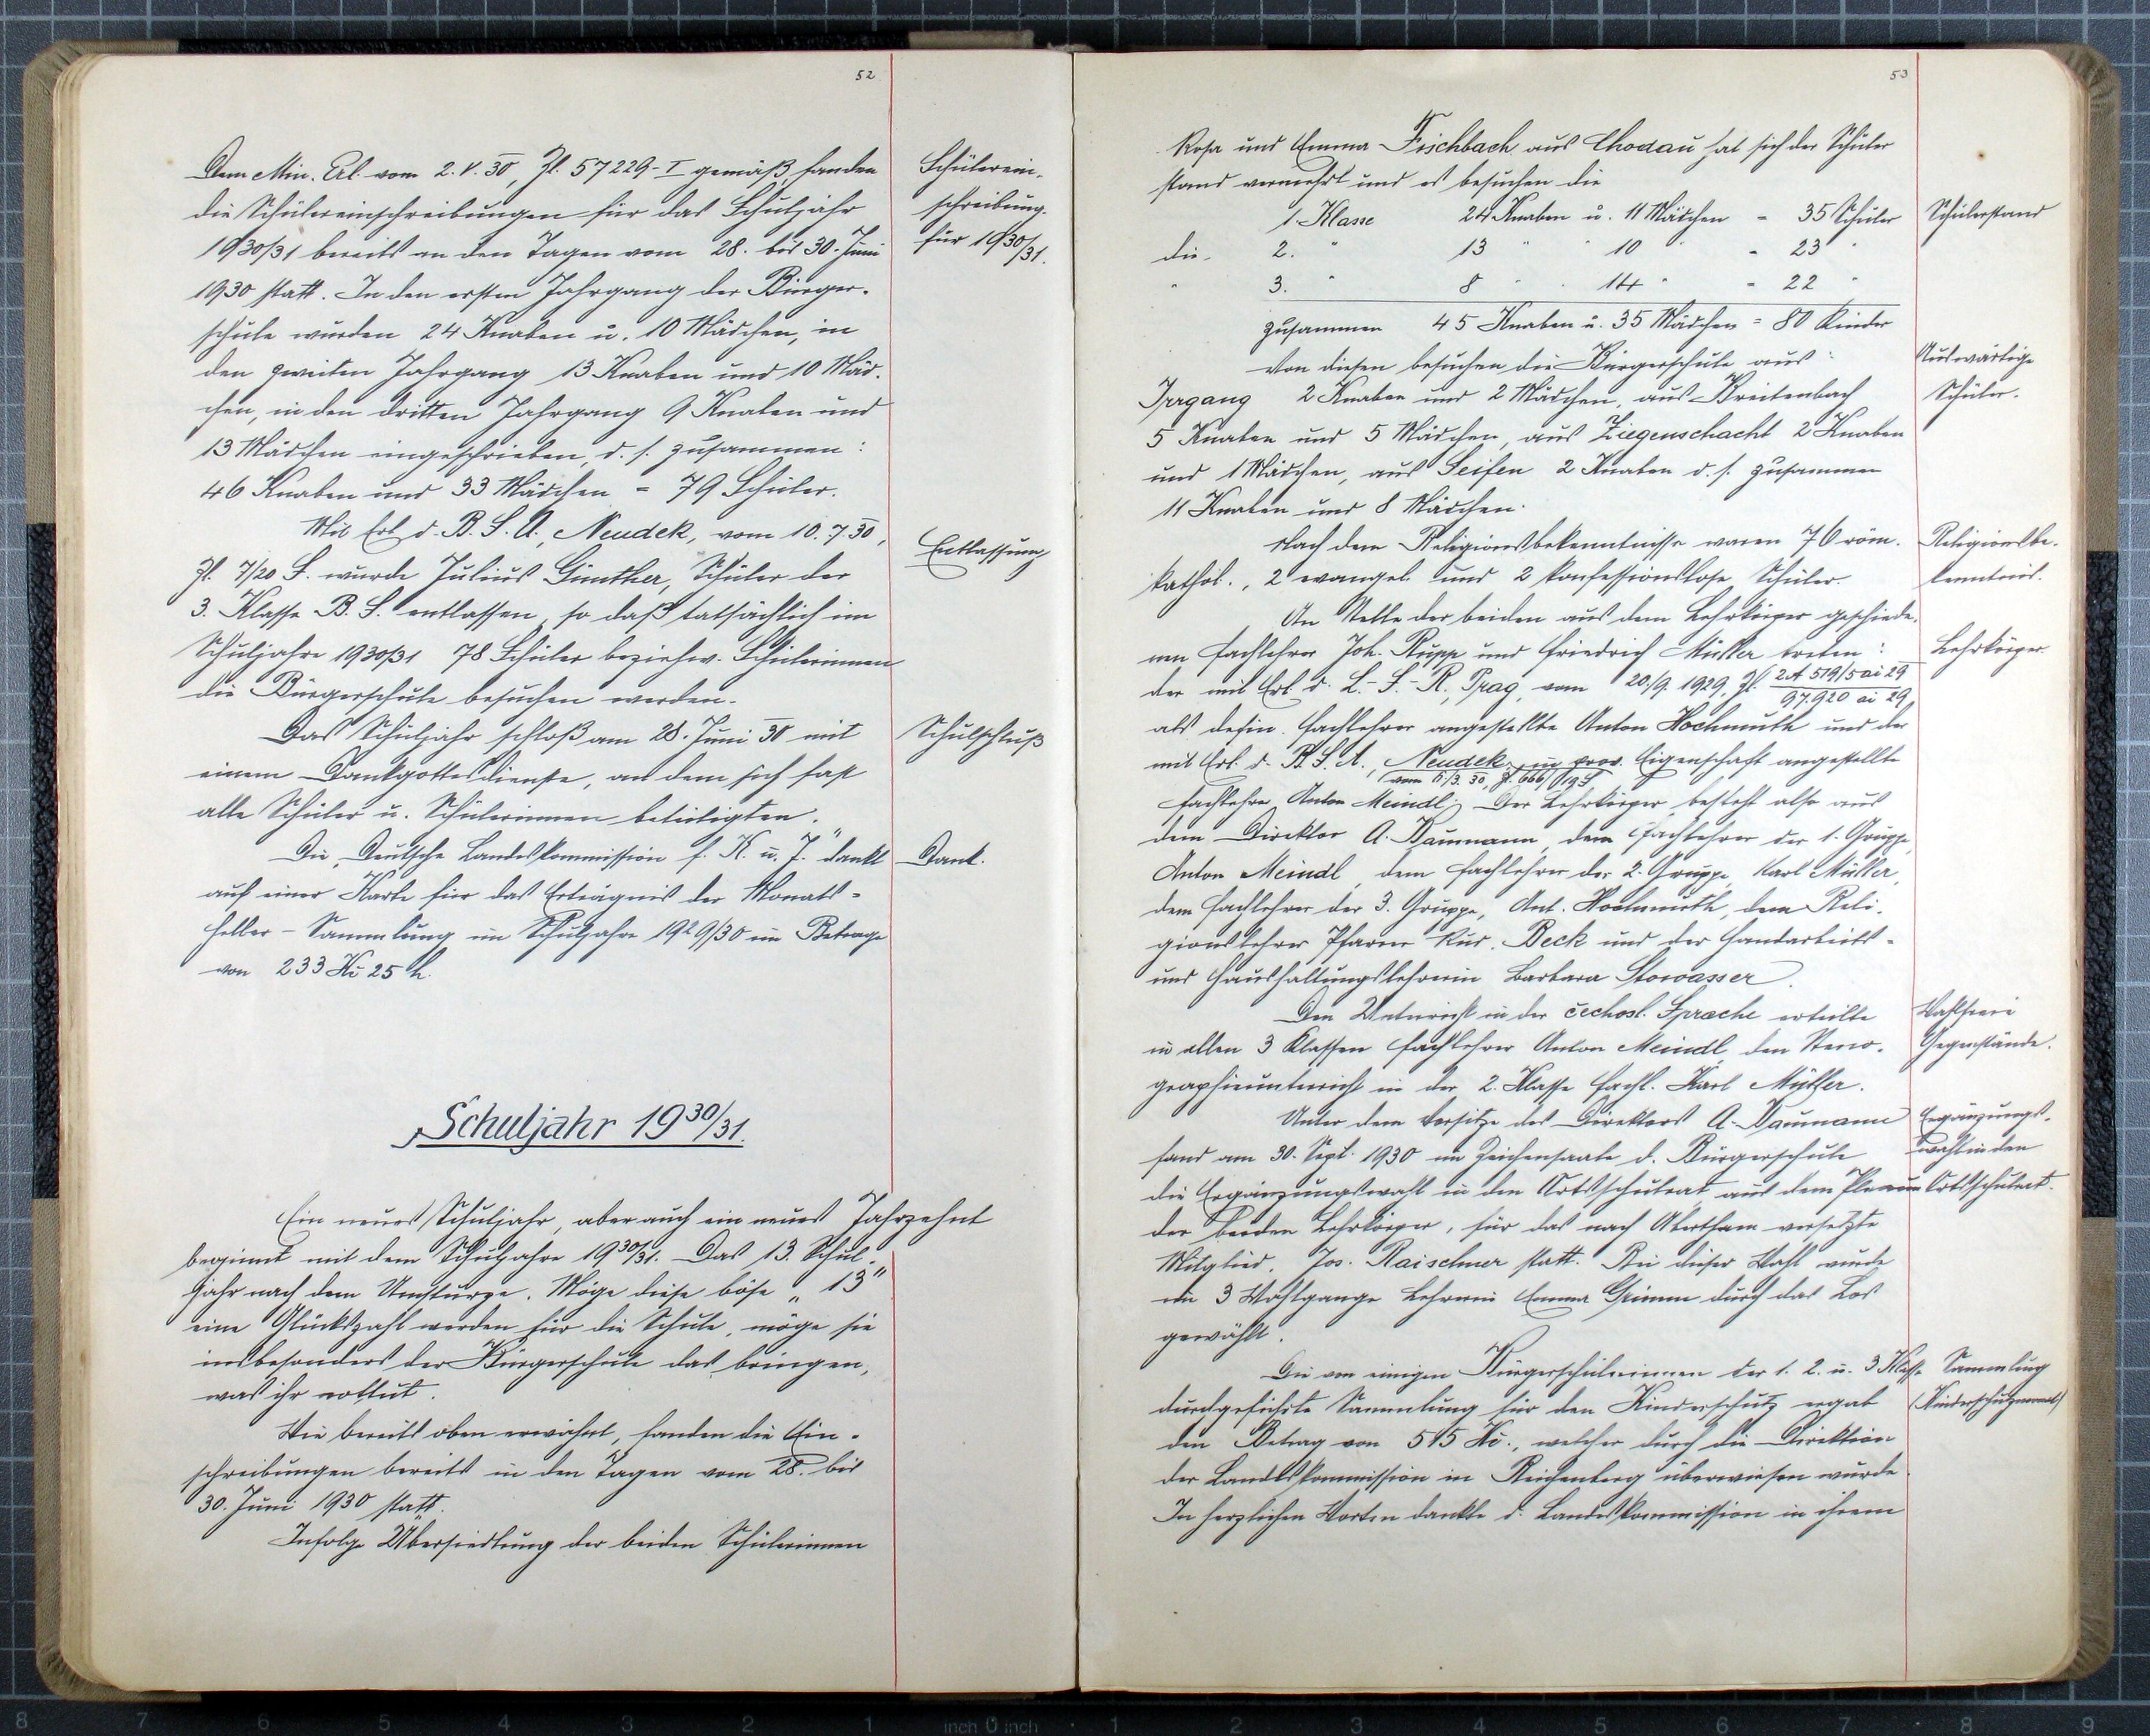 52
Dem Min. Erl. vom 2. V. 30, Zl. 57229-I gemäß, fanden
die Schülereinschreibungen für das Schuljahr
1930/31 bereits an den Tagen vom 28. bis 30. Juni
1930 statt. In den ersten Jahrgang der Bürger-
schule wurden 24 Knaben u. 10 Mädchen, in
den zweiten Jahrgang 13 Knaben und 10 Mäd-
chen, in den dritten Jahrgang 9 Knaben und
13 Mädchen eingeschrieben, d. s. zusammen:
46 Knaben und 33 Mädchen = 79 Schüler.
Schülerein-
schreibung.
für 1930/31.
Mit Erl. d. B. S. A., Neudek, vom 10. 7. 30,
Zl. 7/20 S. wurde Julius Günther, Schüler der
3. Klasse B. S. entlassen, so daß tatsächlich im
Schuljahre 1930/31 78 Schüler beziehw. Schülerinnen
die Bürgerschule besuchen werden.
Entlassung
Das Schuljahr schloß am 28. Juni 30 mit
einem Dankgottesdienste, an dem sich fast
alle Schüler u. Schülerinnen beteiligten.
Schulschluß
Die „Deutsche Landeskommission f. K. u. J." dankt
auf einer Karte für das Erträgnis der Monats-
heller-Sammlung im Schuljahre 1929/30 im Betrage
von 233 Kč 25 h.
Dank.
Schuljahr 1930/31.
Ein neues Schuljahr, aber auch ein neues Jahrzehnt
beginnt mit dem Schuljahre 1930/31. Das 13. Schul-
jahr nach dem Umsturze. Möge diese böse „13"
eine Glückszahl werden für die Schule, möge sie
insbesonders der Bürgerschule das bringen,
was ihr nottut.
Wie bereits oben erwähnt, fanden die Ein-
schreibungen bereits in den Tagen vom 28. bis
30. Juni 1930 statt.
Infolge Übersiedlung der beiden Schülerinnen
53
Rosa und Emma Fischbach aus Chodau hat sich der Schüler
stand vermehrt und es besuchen die
1. Klasse 24 Knaben u. 11 Mädchen = 35 Schüler
die 2. " 13 " " 10 " = 23 "
" 3. " 8 " " 14 " = 22 "
zusammen 45 Knaben u. 35 Mädchen = 80 Kinder
Schülerstand
Von diesen besuchen die Bürgerschule aus:
Irrgang 2 Knaben und 2 Mädchen, aus Breitenbach
5 Knaben und 5 Mädchen, aus Ziegenschacht 2 Knaben
und 1 Mädchen, aus Seifen 2 Knaben d. s. zusammen
11 Knaben und 8 Mädchen.
Auswärtige
Schüler.
Nach dem Religionsbekenntnisse waren 76 röm.
kathol., 2 evangel. und 2 konfessionslose Schüler.
Religionsbe-
kenntnis.
An Stelle der beiden aus dem Lehrkörper geschiede-
nen Fachlehrer Joh. Rupp und Friedrich Müller treten:
der mit Erl. d. L.-S.-R., Prag, vom 20./9. 1929, Zl. 2A 519/5 ai 29
97.920 ai 29
als defin. Fachlehrer angestellte Anton Hochmuth und der
mit Erl. d. B. S. A., Neudek, in prov. Eigenschaft angestellte
Fachlehrer Anton Meindl. Der Lehrkörper besteht also aus
dem Direktor A. Baumann, dem Fachlehrer der 1. Gruppe,
Anton Meindl, dem Fachlehrer der 2. Gruppe, Karl Müller,
dem Fachlehrer der 3. Gruppe, Ant. Hochmuth, dem Reli-
gionslehrer Pfarrer Beck und der Handarbeits-
und Haushaltungslehrerin Barbara Stowasser.
Lehrkörper
Den Unterricht in der čechosl. Sprache erteilte
in allen 3 Klassen Fachlehrer Anton Meindl, den Steno-
graphieunterricht in der 2. Klasse Fachl. Karl Müller.
Wahlfreie
Gegenstände.
Unter dem Vorsitze des Direktors A. Baumann
fand am 30. Sept. 1930 im Zeichensaale d. Bürgerschule
die Ergänzungswahl in den Ortsschulrat aus dem Plenum
der beiden Lehrkörper, für das nach Abertham versetzte
Mitglied, Jos. Raischner statt. Bei dieser Wahl wurde
im 3 Wahlgange Lehrerin Emma Grimm durch das Los
gewählt.
Ergänzungs-
wahl in den
Ortsschulrat.
Die von einigen Bürgerschülerinnen der 1. 2. u. 3 Klasse
durchgeführte Sammlung für den Kinderschutz ergab
den Betrag von 515 Kč., welcher durch die Direktion
der Landeskommission in Reichenberg überwiesen wurde.
In herzlichen Worten dankte d. Landeskommission in ihrem
Sammlung